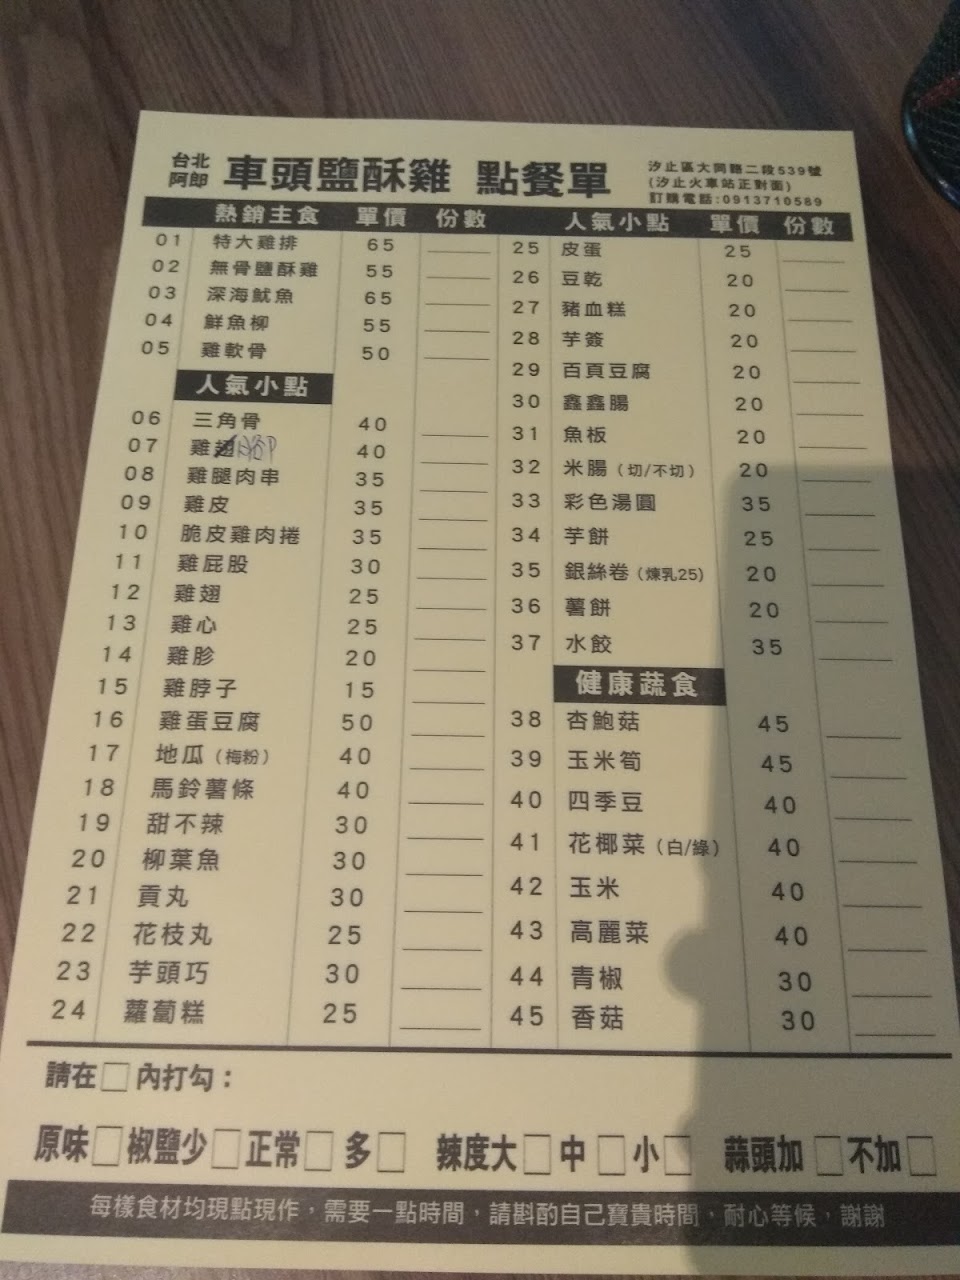 台北阿郎 車頭鹽酥雞 點餐單
汐止區大同路二段539號
(汐止火車站正對面)
訂購電話:0913710589
熱銷主食 單價 份數
01 特大雞排 65
02 無骨鹽酥雞 55
03 深海魷魚 65
04 鮮魚柳 55
05 雞軟骨 50
人氣小點
06 三角骨 40
07 雞翅 40
08 雞腿肉串 35
09 雞皮 35
10 脆皮雞肉捲 35
11 雞屁股 30
12 雞翅 25
13 雞心 25
14 雞胗 20
15 雞脖子 15
16 雞蛋豆腐 50
17 地瓜(梅粉) 40
18 馬鈴薯條 40
19 甜不辣 30
20 柳葉魚 30
21 貢丸 30
22 花枝丸 25
23 芋頭巧 30
24 蘿蔔糕 25
人氣小點 單價 份數
25 皮蛋 25
26 豆乾 20
27 豬血糕 20
28 芋簽 20
29 百頁豆腐 20
30 鑫鑫腸 20
31 魚板 20
32 米腸(切/不切) 20
33 彩色湯圓 35
34 芋餅 25
35 銀絲卷(煉乳25) 20
36 薯餅 20
37 水餃 35
健康蔬食
38 杏鮑菇 45
39 玉米筍 45
40 四季豆 40
41 花椰菜(白/綠) 40
42 玉米 40
43 高麗菜 40
44 青椒 30
45 香菇 30
請在□內打勾：
原味□椒鹽少□正常□多□ 辣度大□中□小□ 蒜頭加□不加□
每樣食材均現點現作，需要一點時間，請斟酌自己寶貴時間，耐心等候，謝謝